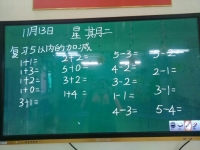 11月13日 星期二
复习5以内的加减
1+1= 2+2= 5-3= 5-2=
1+3= 5+0= 4-2= 2-1=
1+2= 3+2= 3-2= 3-1=
1+0= 1+4 1-1= 5-4=
3+1= 4-3=